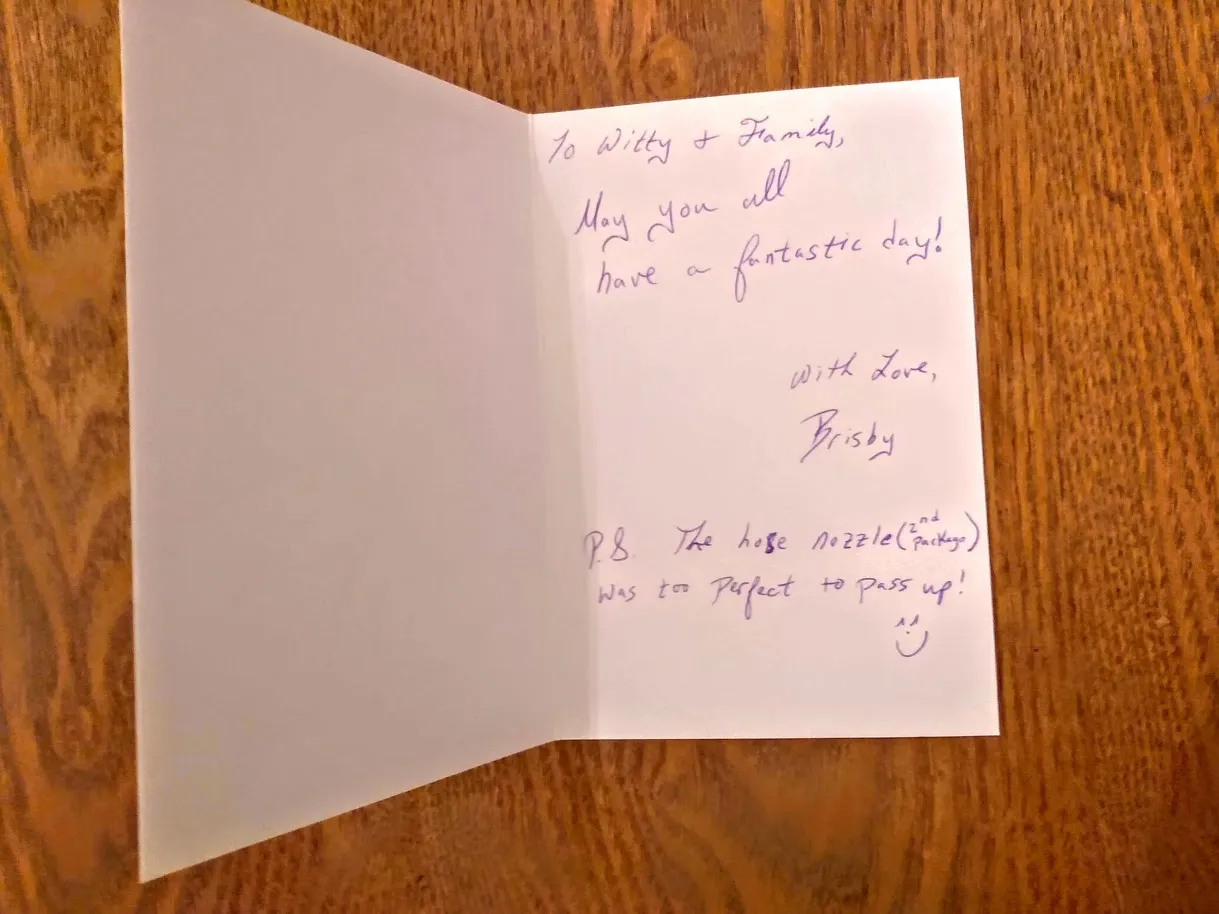 To Witty + Family,
May you all
have a fantastic day!
With Love,
Brisby
P.S. The hose nozzle (2nd package)
was too perfect to pass up!